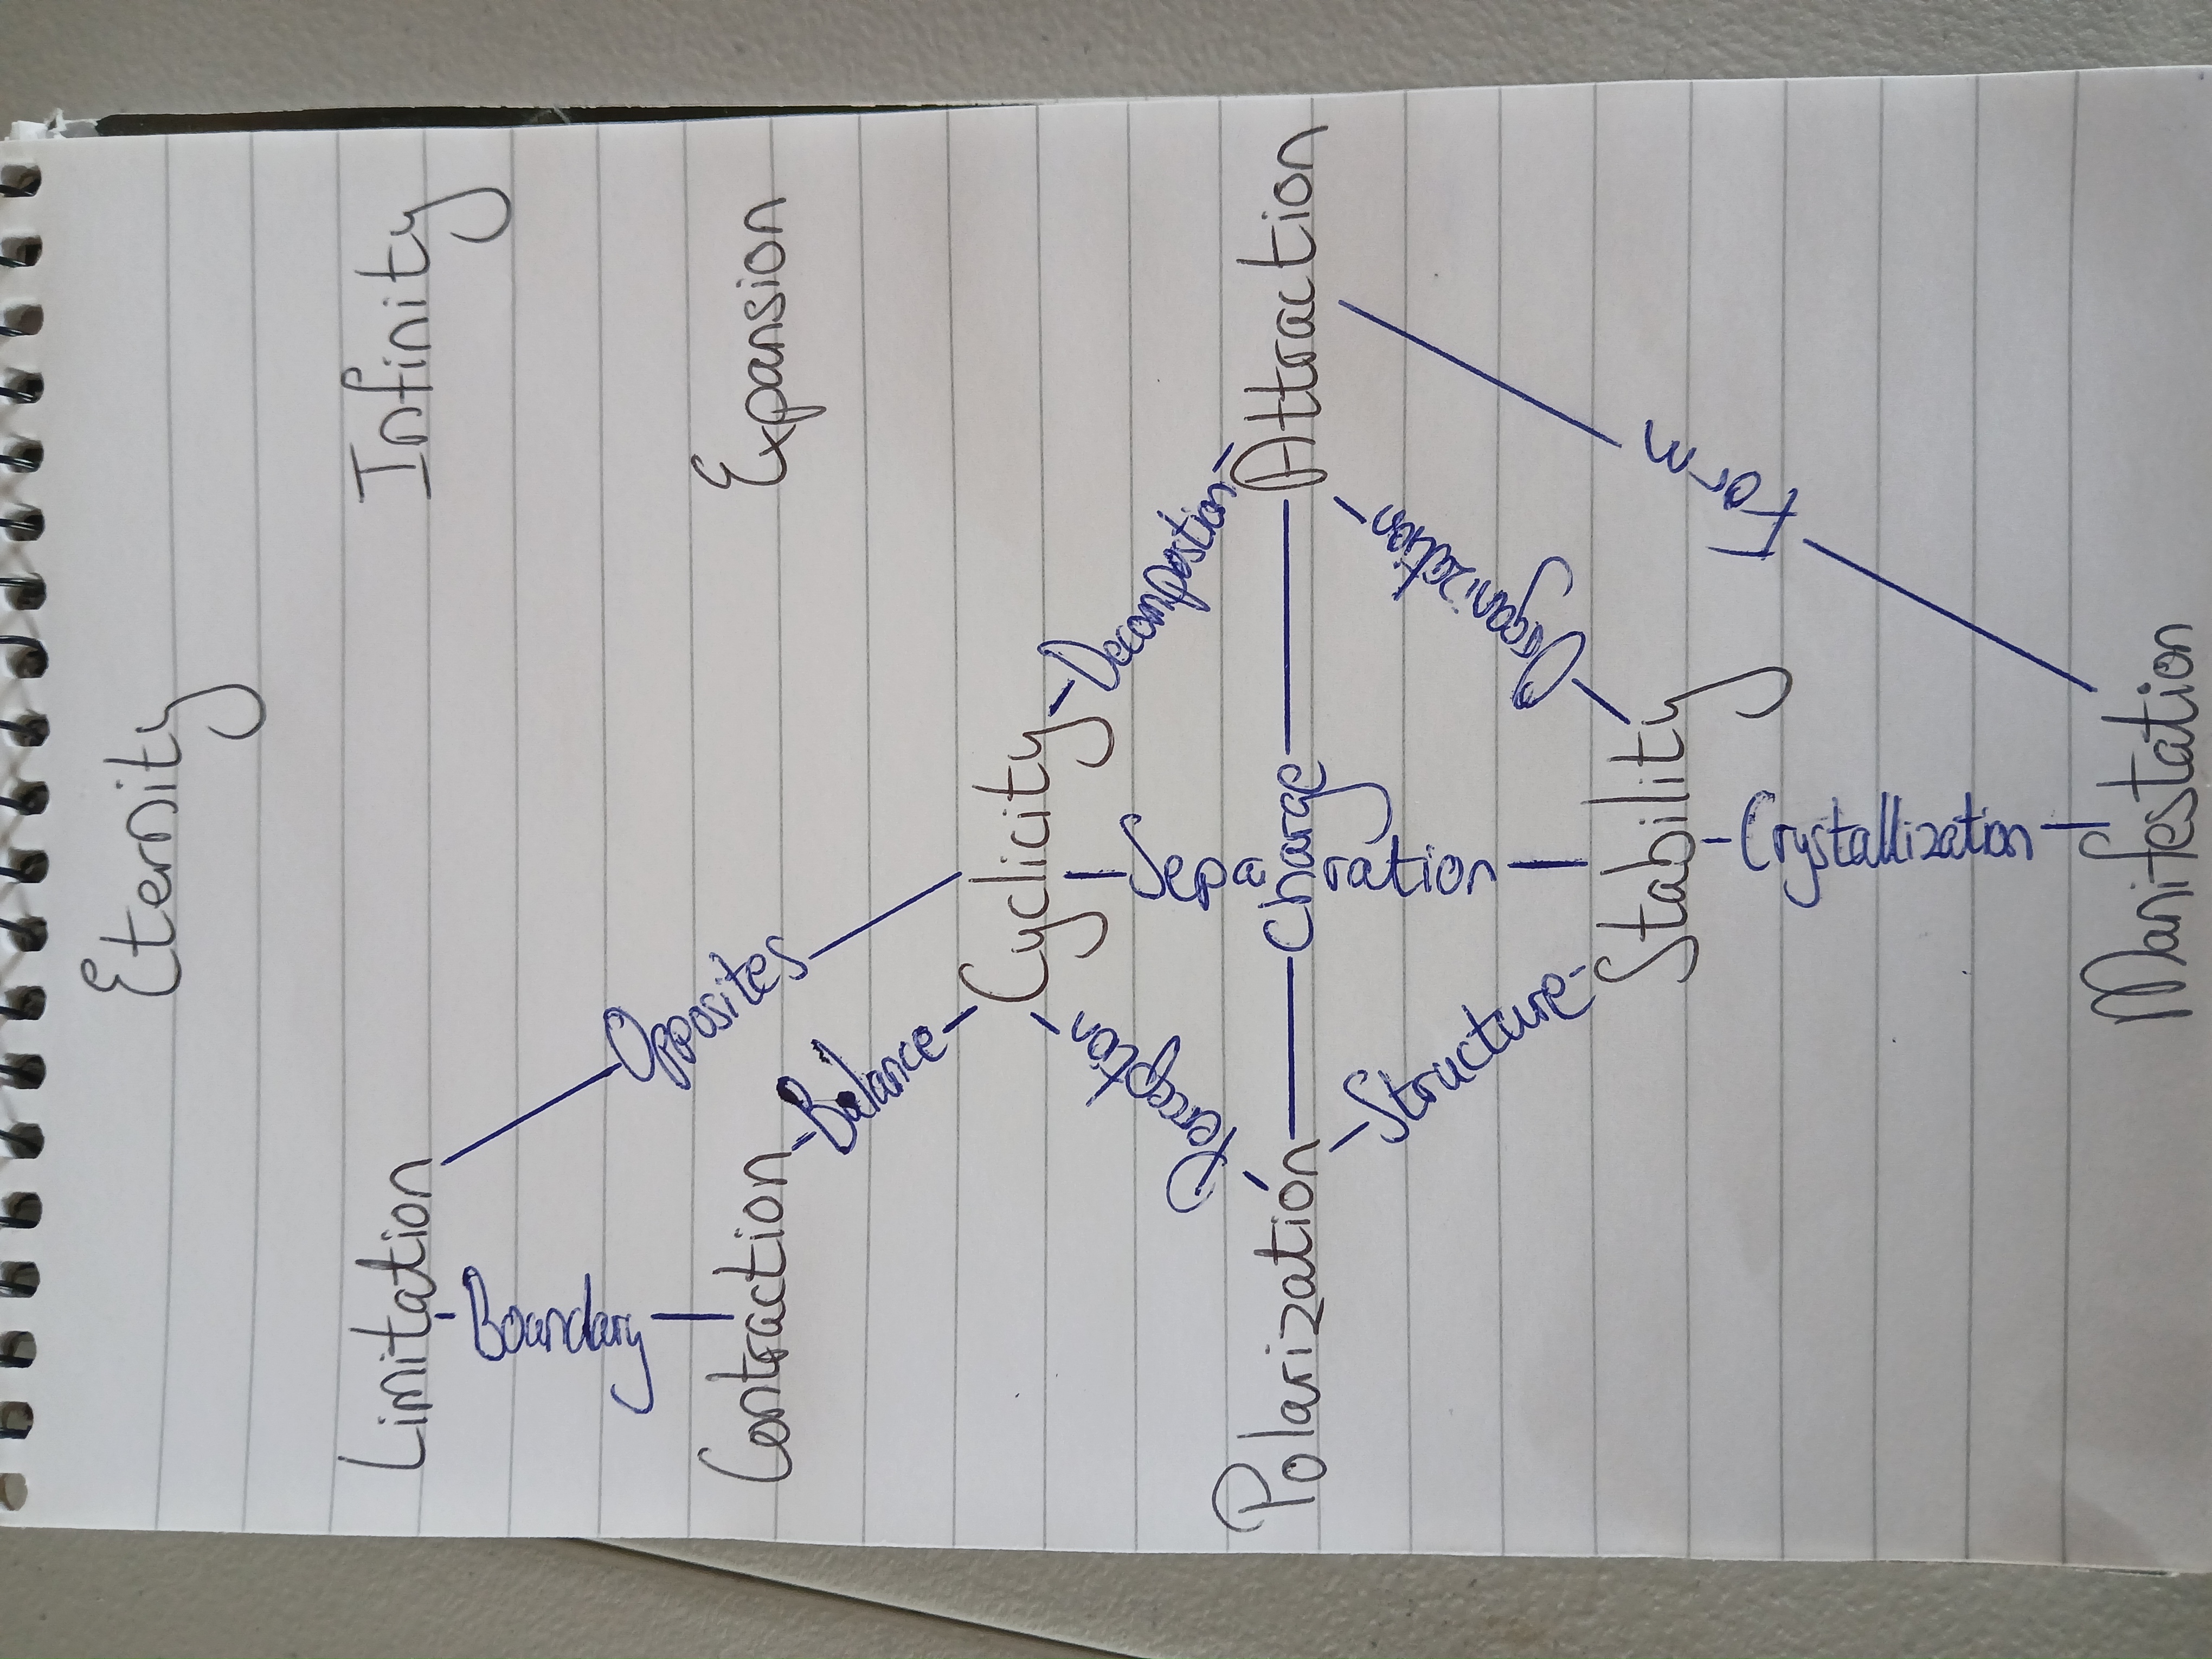 Eternity
Limitation
Infinity
Boundary
Opposites
Contraction
Expansion
Balance
Cyclicity
Perception
Separation
Decompostion
Polarization
Charge
Attraction
Structure
Organization
Stability
Form
Crystallization
Manifestation